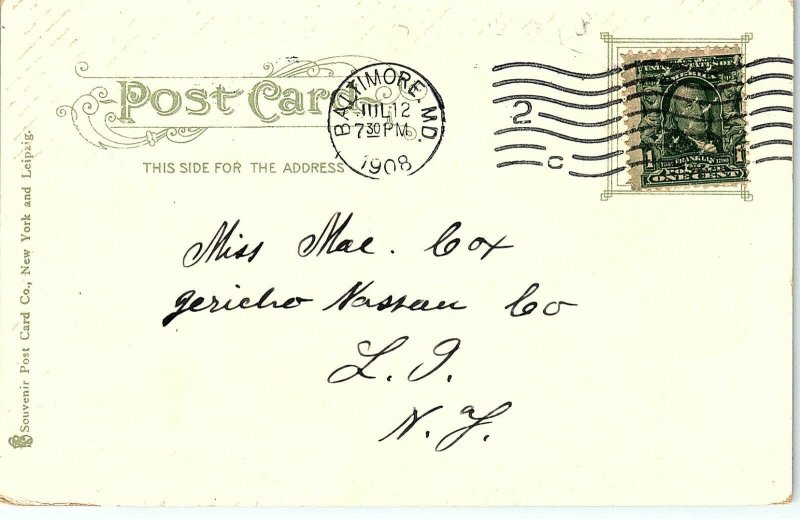 Post Card
THIS SIDE FOR THE ADDRESS
BALTIMORE, MD.
JUL 12
7 30 PM
1908
2
C
FRANKLIN
1 1
POSTAGE
ONE CENT
Miss Mae. Cox
Jericho Nassau Co
L. I.
N. Y.
Souvenir Post Card Co., New York and Leipzig.